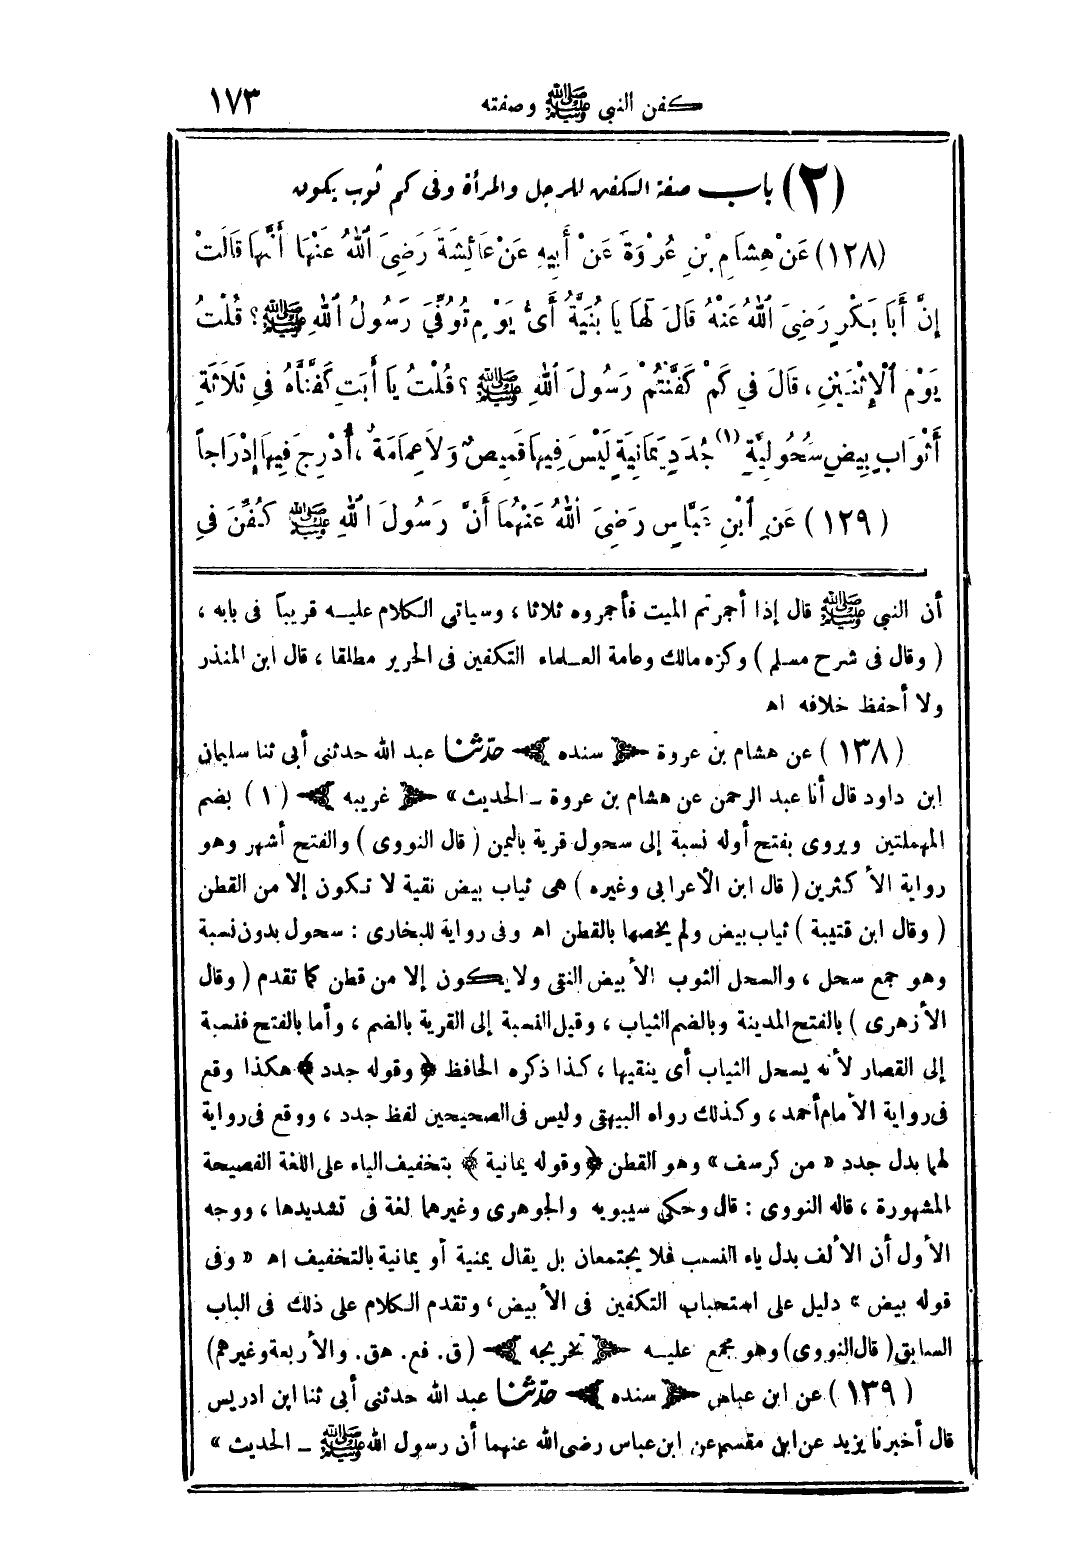 كفن النبي ﷺ وصفته ١٧٣
(٢) باب صفة الكفن للرجل والمرأة وفى كم ثوب يكون
(١٢٨) عَنْ هِشَامِ بْنِ عُرْوَةَ عَنْ أَبِيهِ عَنْ عَائِشَةَ رَضِىَ ٱللهُ عَنْهَا أَنَّهَا قَالَتْ
إِنَّ أَبَا بَكْرٍ رَضِىَ ٱللهُ عَنْهُ قَالَ لَهَا يَا بُنَيَّةُ أَىُّ يَوْمٍ تُوُفِّىَ رَسُولُ ٱللهِ ﷺ ؟ قُلْتُ
يَوْمَ ٱلْإِثْنَيْنِ ، قَالَ فِي كَمْ كَفَّنْتُمْ رَسُولَ ٱللهِ ﷺ ؟ قُلْتُ يَا أَبَتِ كَفَّنَّاهُ فِى ثَلَاثَةِ
أَثْوَابٍ بِيضٍ سَحُولِيَّةٍ (١) جُدَدٍ يَمَانِيَةٍ لَيْسَ فِيهَا قَمِيصٌ وَلَا عِمَامَةٌ ، أُدْرِجَ فِيهَا إِدْرَاجاً
(١٢٩) عَنِ ٱبْنِ عَبَّاسٍ رَضِىَ ٱللهُ عَنْهُمَا أَنَّ رَسُولَ ٱللهِ ﷺ كُفِّنَ فِى
أن النبي ﷺ قال إذا أجمرتم الميت فأجمروه ثلاثا ، وسيأتى الكلام عليه قريباً فى بابه ،
( وقال فى شرح مسلم ) وكره مالك وعامة العلماء التكفين فى الحرير مطلقا ، قال ابن المنذر
ولا أحفظ خلافه اه
(١٣٨) عن هشام بن عروة ﴿ سنده ﴾ حدّثنا عبد الله حدثنى أبى ثنا سليمان
ابن داود قال أنا عبد الرحمن عن هشام بن عروة ـ الحديث » ﴿ غريبه ﴾ (١) بضم
المهملتين ويروى بفتح أوله نسبة إلى سحول قرية باليمن ( قال النووى ) والفتح أشهر وهو
رواية الأكثرين ( قال ابن الأعرابى وغيره ) هى ثياب بيض نقية لا تكون إلا من القطن
( وقال ابن قتيبة ) ثياب بيض ولم يخصها بالقطن اه وفى رواية للبخارى : سحول بدون نسبة
وهو جمع سحل ، والسحل الثوب الأبيض النقى ولا يكون إلا من قطن كما تقدم ( وقال
الأزهرى ) بالفتح المدينة وبالضم الثياب ، وقيل النسبة إلى القرية بالضم ، وأما بالفتح فنسبة
إلى القصار لأنه يسحل الثياب أى ينقيها ، كذا ذكره الحافظ ﴿ وقوله جدد ﴾ هكذا وقع
فى رواية الأمام أحمد ، وكذلك رواه البيهقى وليس فى الصحيحين لفظ جدد ، ووقع فى رواية
لهما بدل جدد « من كرسف » وهو القطن ﴿ وقوله يمانية ﴾ بتخفيف الياء على اللغة الفصيحة
المشهورة ، قاله النووى : قال وحكى سيبويه والجوهرى وغيرهما لغة فى تشديدها ، ووجه
الأول أن الألف بدل ياء النسب فلا يجتمعان بل يقال يمنية أو يمانية بالتخفيف اه « وفى
قوله بيض » دليل على استحباب التكفين فى الأبيض ، وتقدم الكلام على ذلك فى الباب
السابق ( قال النووى ) وهو مجمع عليه ﴿ تخريجه ﴾ ( ق. فع. هق. والأربعة وغيرهم)
(١٣٩) عن ابن عباس ﴿ سنده ﴾ حدّثنا عبد الله حدثنى أبى ثنا ابن ادريس
قال أخبرنا يزيد عن ابن مقسم عن ابن عباس رضى الله عنهما أن رسول الله ﷺ ـ الحديث »